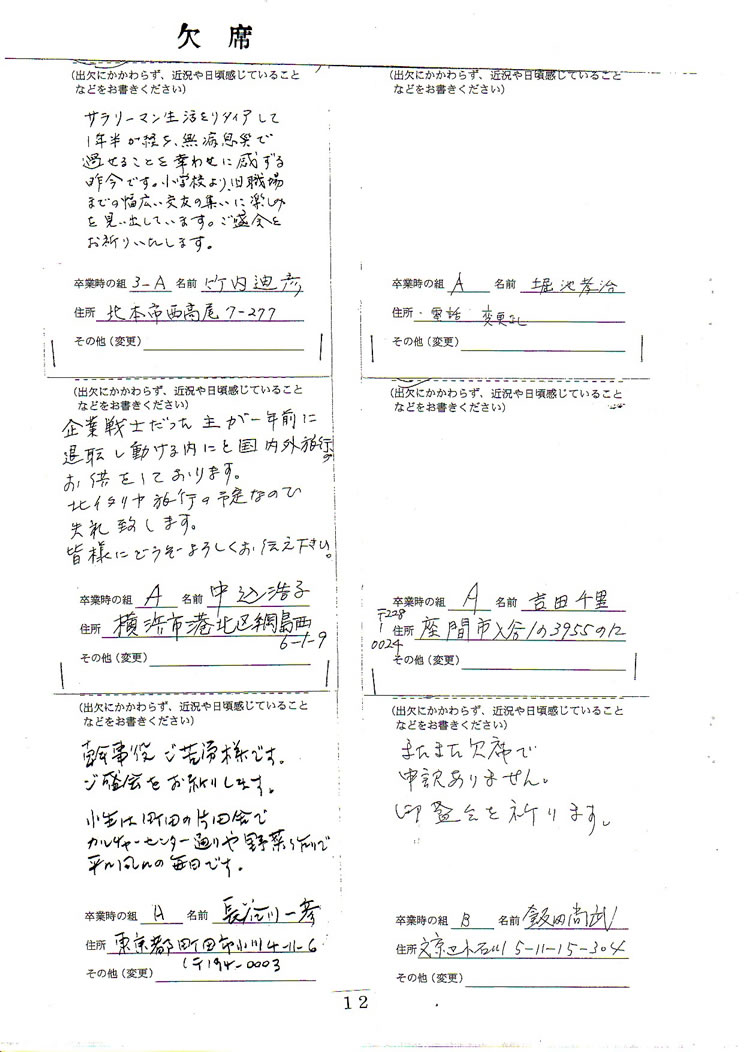 欠席
(出欠にかかわらず、近況や日頃感じていること
などをお書きください)
サラリーマン生活をリタイアして
1年半が経ち、無病息災で
過せることを幸わせに感ずる
昨今です。小学校より、旧職場
までの幅広い交友の集いに楽しみ
を見い出しています。ご盛会を
お祈りいたします。
卒業時の組 3-A 名前 竹内迪彦
住所 北本市西高尾7-277
その他(変更)
(出欠にかかわらず、近況や日頃感じていること
などをお書きください)
卒業時の組 A 名前 堀池孝治
住所・電話 変更なし
その他(変更)
(出欠にかかわらず、近況や日頃感じていること
などをお書きください)
企業戦士だった主が一年前に
退転し動ける内にと国内外旅行の
お供をしております。
北イタリヤ旅行の予定なので
失礼致します。
皆様にどうぞよろしくお伝え下さい。
卒業時の組 A 名前 中込浩子
住所 横浜市港北区綱島西
6-1-9
その他(変更)
(出欠にかかわらず、近況や日頃感じていること
などをお書きください)
卒業時の組 A 名前 吉田千里
〒228-0024
住所 座間市入谷1の3955の12
その他(変更)
(出欠にかかわらず、近況や日頃感じていること
などをお書きください)
幹事役ご苦労様です。
ご盛会をお祈りします。
小生は町田の片田舎で
カルチャーセンター通りや野菜作りで
平凡の毎日です。
卒業時の組 A 名前 長谷川一彦
住所 東京都町田市小川4-11-6
(〒194-0003
その他(変更)
(出欠にかかわらず、近況や日頃感じていること
などをお書きください)
またまた欠席で
申訳ありません。
御盛会を祈ります。
卒業時の組 B 名前 飯田尚武
住所 文京区小石川5-11-15-304
その他(変更)
12